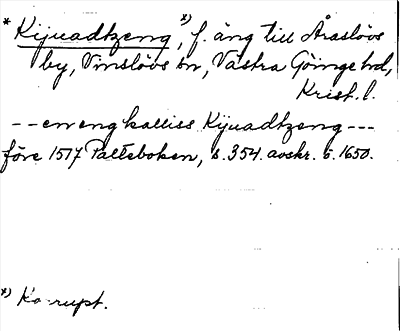 * Kijuadtzeng *), f. äng till Åraslövs
by, Vinslövs sn, Västra Göinge hd,
Krist. l.
-- en eng kalliss Kijuadtzeng ---
före 1517 Palteboken, s. 354. avskr. c. 1650.
*) Korrupt.